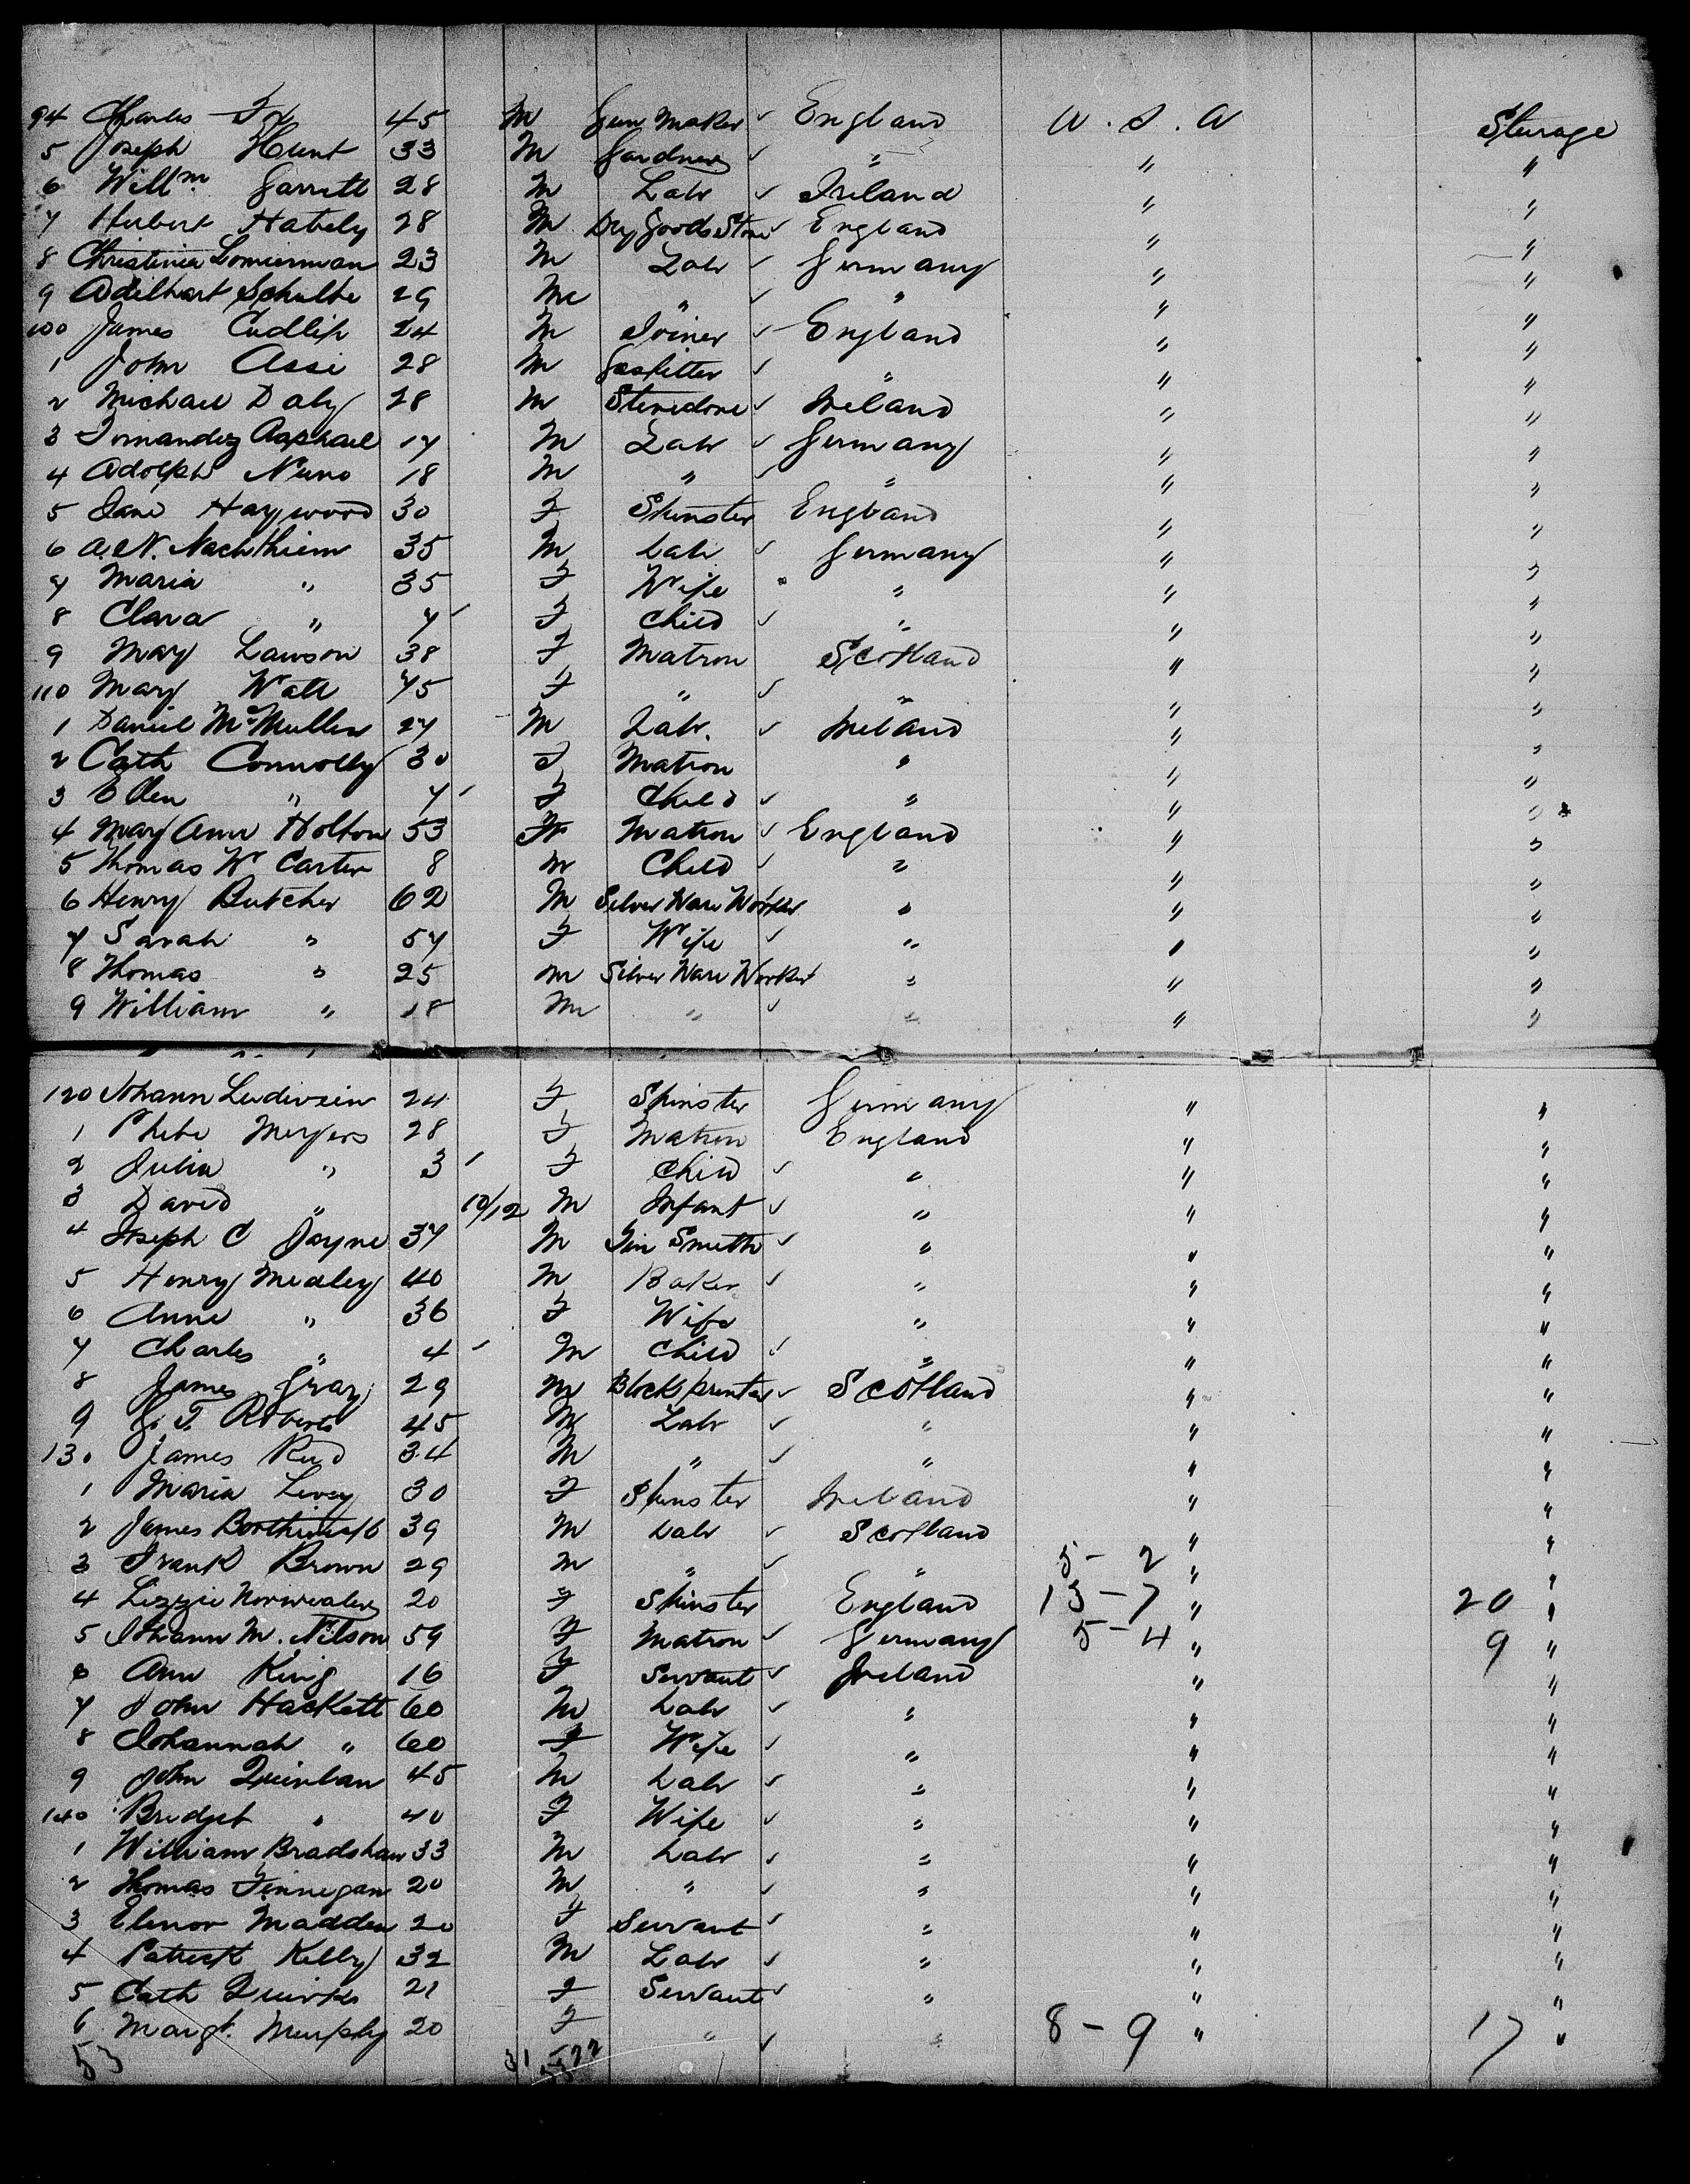 94 Charles Fox 45 M Gun Maker ✓ England U. S. A Sturage
5 Joseph Hunt 33 M Gardner ✓ " " "
6 Willm Garrett 28 M Labr ✓ Ireland " "
7 Herbert Hately 28 M Dry Goods Store ✓ England " "
8 Christinia 23 M Labr ✓ Germany " "
9 Adelhart Schulte 29 M " ✓ " " "
100 James Cudlip 24 M Joiner ✓ England " "
1 John Assi 28 M Gasfitter ✓ " " "
2 Michael Daly 28 M Stevedore ✓ Ireland " "
3 Fernandez Raphael 17 M Labr ✓ Germany " "
4 Adolph Nuno 18 M " ✓ " " "
5 Jane Haywood 30 F Spinster England " "
6 A. N. Nachthiem 35 M Labr ✓ Germany " "
7 Maria " 35 F Wife " " "
8 Clara " 7 F Child ✓ " " "
9 May Lawson 38 F Matron Scotland " "
110 Mary Watt 45 F " ✓ " " "
1 Daniel McMullen 27 M Labr. ✓ Ireland " "
2 Cath Connolly 30 F Matron " " "
3 Ellen " 7 F Child ✓ " " "
4 Mary Ann Holton 53 F Matron ✓ England " "
5 Thomas W Carter 8 M Child ✓ " " "
6 Henry Butcher 62 M Silver Ware Worker " " "
7 Sarah " 57 F Wife ✓ " " "
8 Thomas " 25 M Silver Ware Worker " " "
9 William " 18 M " ✓ " " "
120 Johann 24 F Spinster Germany " "
1 Phebe Meyers 28 F Matron England " "
2 Julia " 3 F Child ✓ " " "
3 David " 10/12 M Infant ✓ " " "
4 Joseph C Jayne 37 M Tin Smith ✓ " " "
5 Henry Medley 40 M Baker ✓ " " "
6 Anne " 36 F Wife " " "
7 Charles " 4 M Child ✓ " " "
8 James Gray 29 M Block printer ✓ Scotland " "
9 J. T. Roberts 45 M Labr ✓ " " "
130 James Reid 34 M " ✓ " " "
1 Maria Levey 30 F Spinster Ireland " "
2 James 39 M Labr ✓ Scotland " "
3 Frank Brown 29 M " ✓ " 5 - 2 " "
4 Lizzie 20 F Spinster England 13 - 7 " 20 "
5 Johann M. Nilson 59 F Matron ✓ Germany 5 - 4 " 9 "
6 Ann King 16 F Servant ✓ Ireland " "
7 John Hackett 60 M Labr ✓ " " "
8 Johannah " 60 F Wife ✓ " " "
9 John Quinlan 45 M Labr ✓ " " "
140 Bridget " 40 F Wife ✓ " " "
1 William Bradshaw 33 M Labr ✓ " " "
2 Thomas Finnegan 20 M " ✓ " " "
3 Elenor Madden 20 F Servant ✓ " " "
4 Patrick Kelly 32 M Labr ✓ " " "
5 Cath Quirke 21 F Servant ✓ " " "
6 Margt. Murphy 20 F " ✓ " 8 - 9 " 17 "
53 31 22